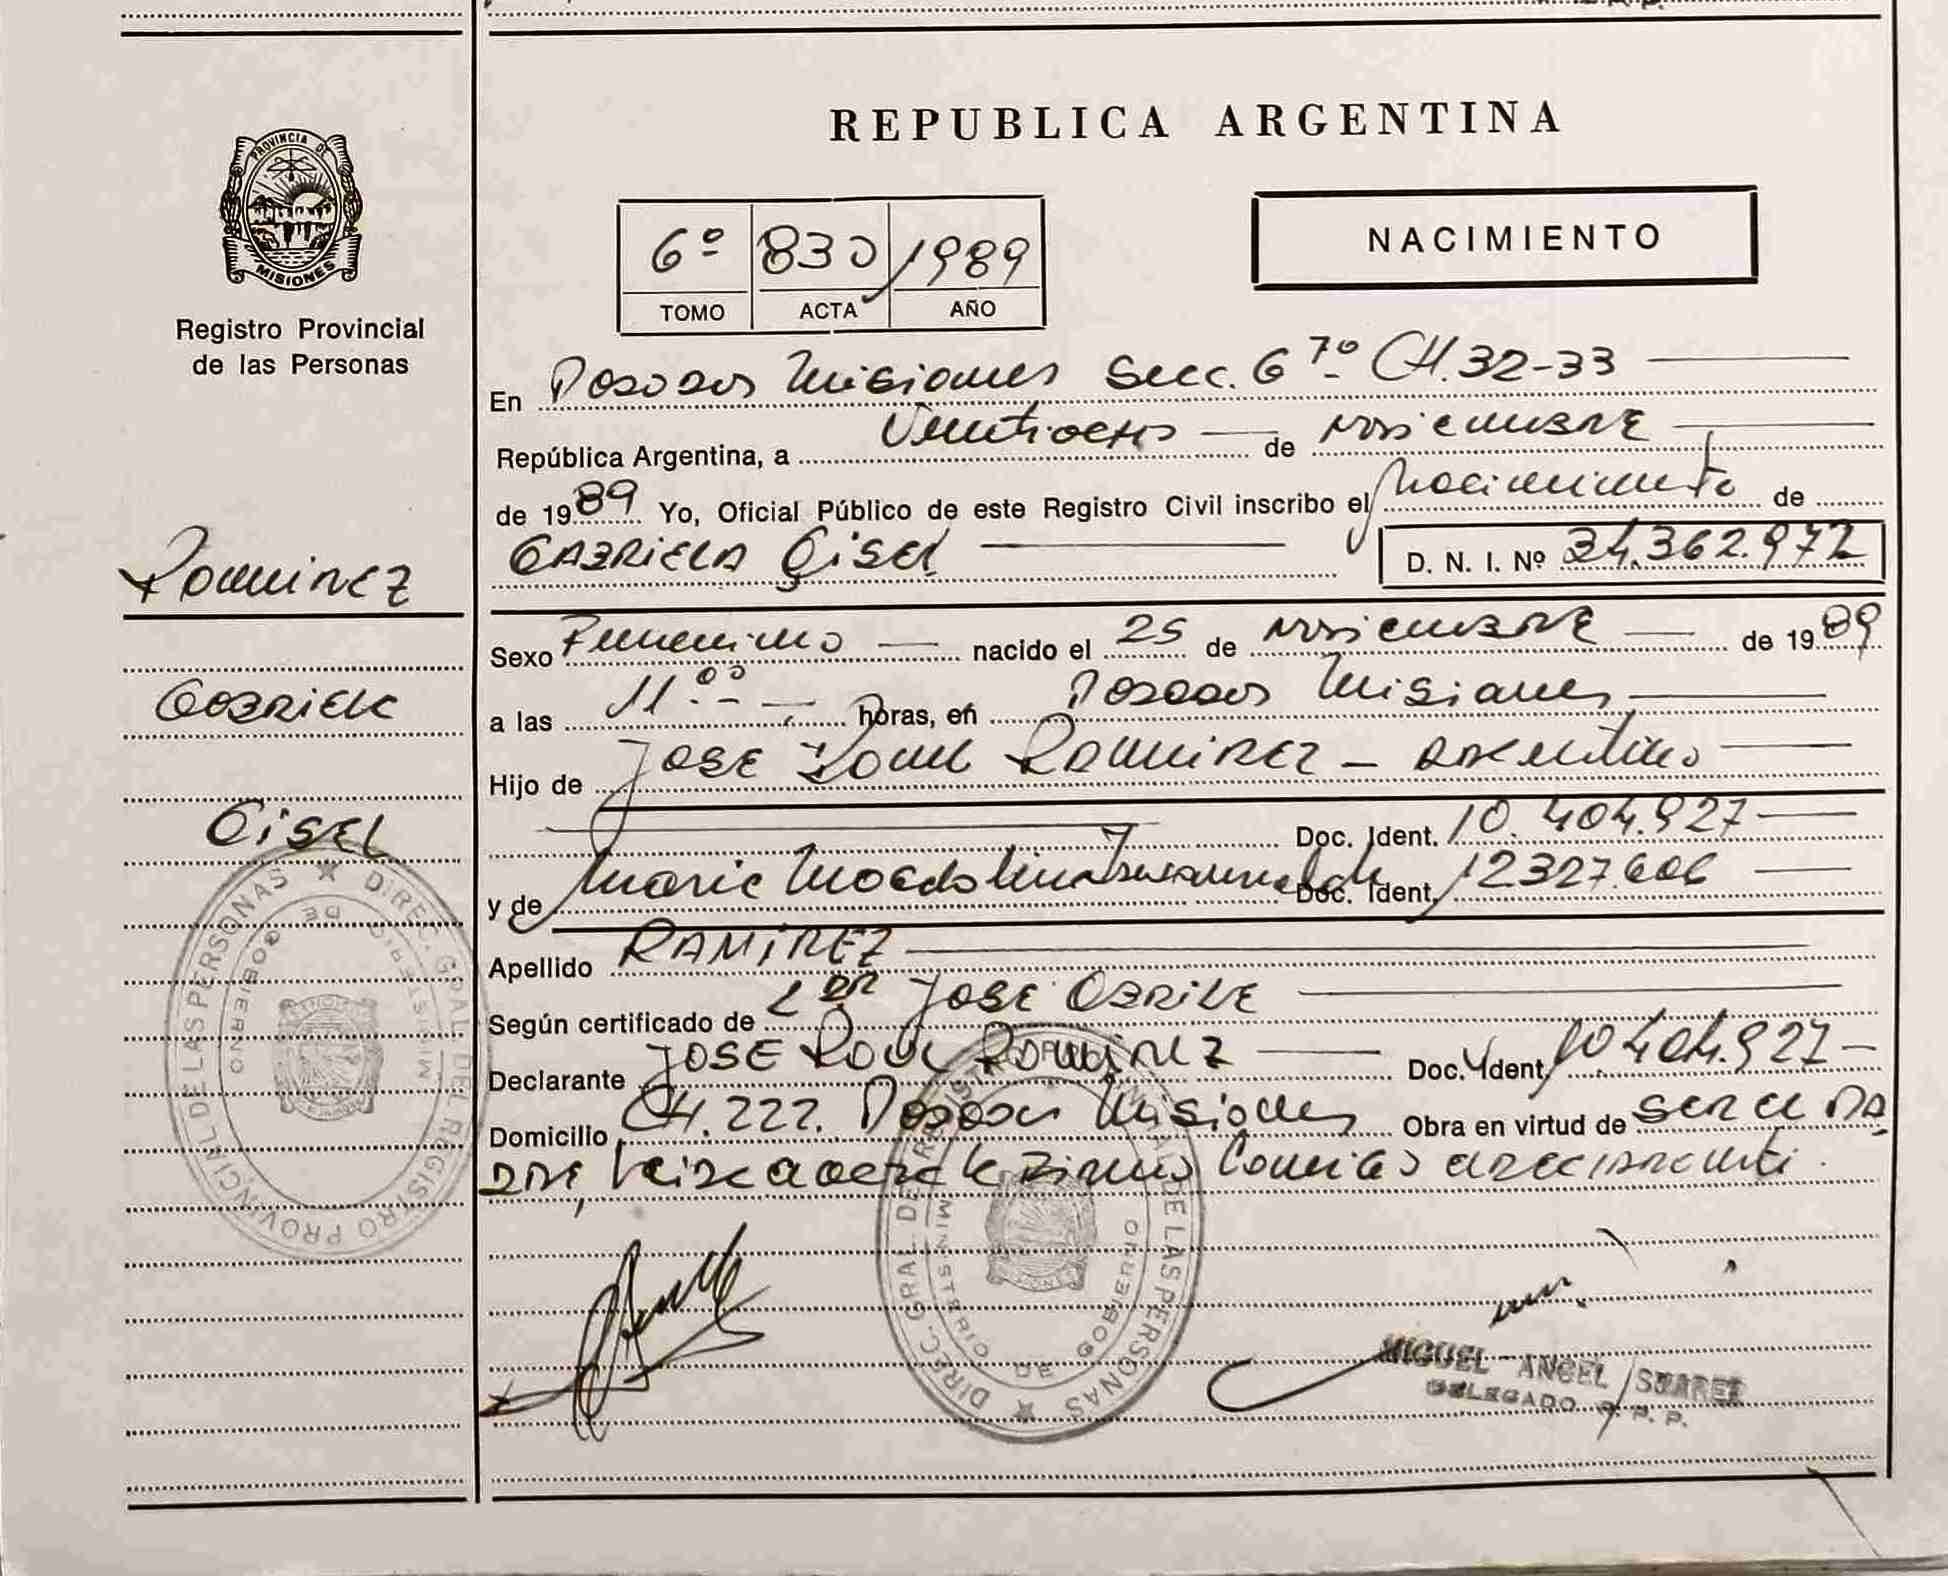 PROVINCIA DE
MISIONES
Registro Provincial
de las Personas
Ramirez
Gabriela
Gisel
REPUBLICA ARGENTINA
NACIMIENTO
6º 830 1989
TOMO ACTA AÑO
En Posadas Misiones Secc. 6 7º CH. 32-33
República Argentina, a Veintiocho de Noviembre
de 1989 Yo, Oficial Público de este Registro Civil inscribo el Nacimiento de
GABRIELA GISEL D. N. I. Nº 34.362.972
Sexo Femenino nacido el 25 de Noviembre de 1989
a las 11.00 horas, en Posadas Misiones
Hijo de Jose Raul Ramirez - Argentino
Doc. Ident. 10.404.927
y de Maria Magdalena Doc. Ident. 12327.606
Apellido RAMIREZ
Según certificado de JOSE
Declarante JOSE Raul Ramirez Doc. Ident. 10.404.927
Domicilio CH. 222. Posadas Misiones Obra en virtud de ser el pa
dre, leida acta la firma conmigo el declarante.
DIREC. GRAL. DEL REGISTRO PROVINCIAL DE LAS PERSONAS
MINISTERIO DE GOBIERNO
DIREC. GRAL. DEL REGISTRO PROVINCIAL DE LAS PERSONAS
MINISTERIO DE GOBIERNO
MIGUEL ANGEL SUAREZ
DELEGADO R. P. P.